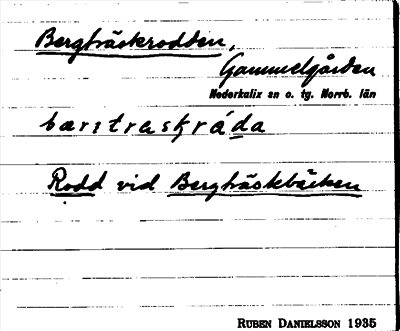 Bergträskrodden,
Gammelgården
Nederkalix sn o. tg. Norrb. län
bærstraskráda
Rodd vid Bergträskbäcken
RUBEN DANIELSSON 1935